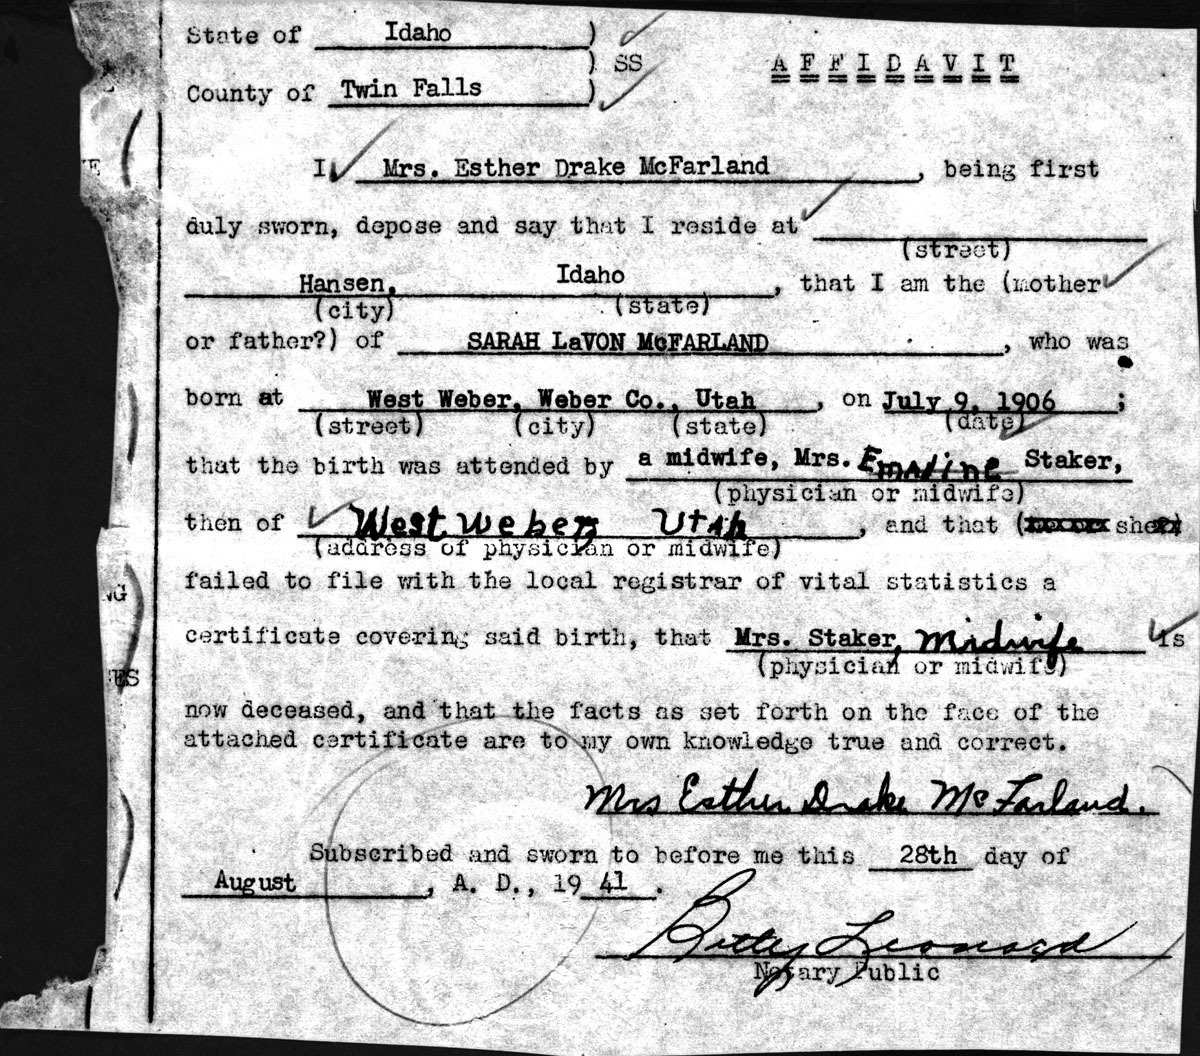 State of Idaho )
) SS AFFIDAVIT
County of Twin Falls )
I Mrs. Esther Drake McFarland, being first
duly sworn, depose and say that I reside at
(street)
Hansen, Idaho, that I am the (mother
(city) (state)
or father?) of SARAH LaVON McFARLAND, who was
born at West Weber, Weber Co., Utah, on July 9, 1906;
(street) (city) (state) (date)
that the birth was attended by a midwife, Mrs. Emaline Staker,
(physician or midwife)
then of West Weber, Utah, and that (she
(address of physician or midwife)
failed to file with the local registrar of vital statistics a
certificate covering said birth, that Mrs. Staker, Midwife is
(physician or midwife)
now deceased, and that the facts as set forth on the face of the
attached certificate are to my own knowledge true and correct.
Mrs Esther Drake McFarland.
Subscribed and sworn to before me this 28th day of
August, A. D., 19 41.
Betty Leonard
Notary Public
NG
ES